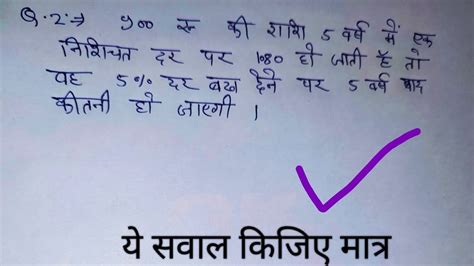 Q.2⇒ 900 रू की राशि 5 वर्ष में एक
निशिचत दर पर 1080 हो जाती है तो
वह 5% दर बढ़ा देने पर 5 वर्ष बाद
कीतनी हो जाएगी ।
ये सवाल किजिए मात्र